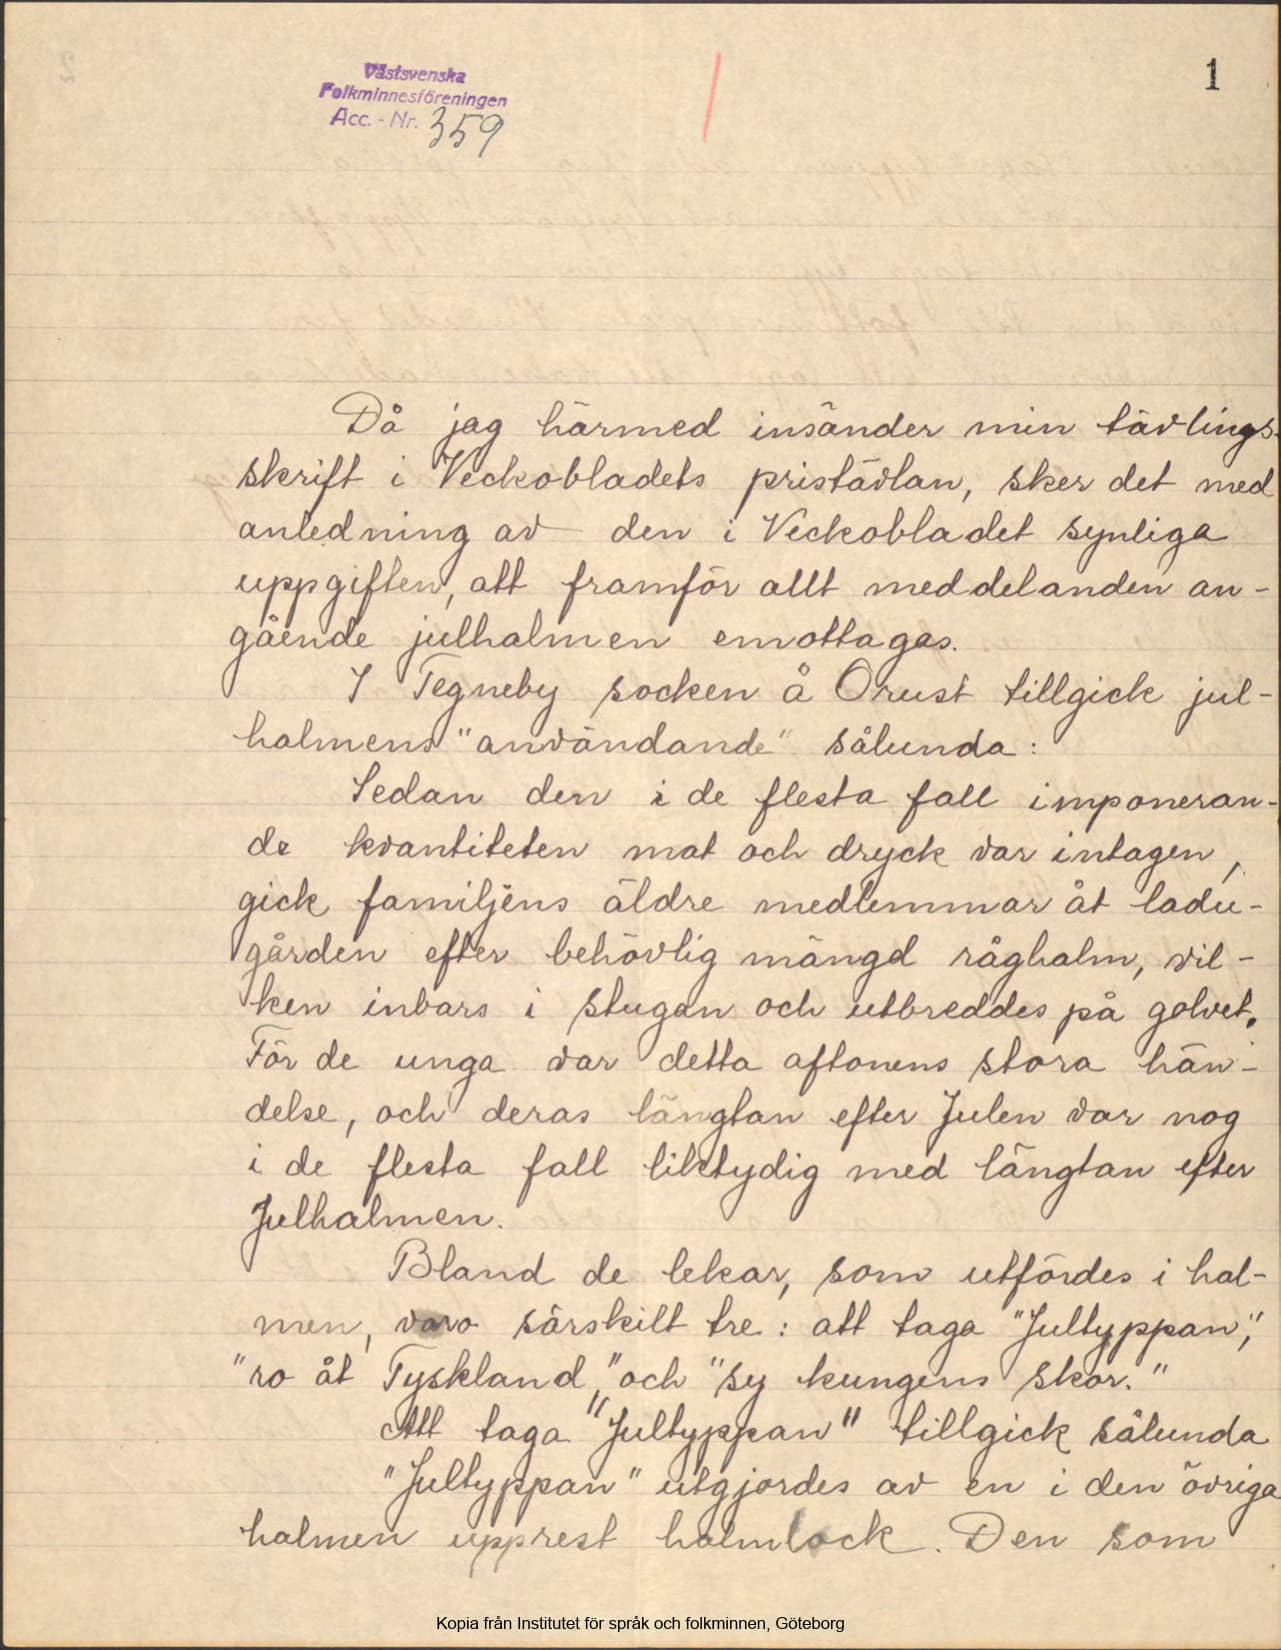 Västsvenska
Folkminnesföreningen
Acc. - Nr. 359
1
Då jag härmed insänder min tävlings-
skrift i Veckobladets pristävlan, sker det med
anledning av den i Veckobladet synliga
uppgiften, att framför allt meddelanden an-
gående julhalmen emottagas.
I Tegneby socken å Orust tillgick jul-
halmens "användande" sålunda:
Sedan den i de flesta fall imponeran-
de kvantiteten mat och dryck var intagen,
gick familjens äldre medlemmar åt ladu-
gården efter behövlig mängd råghalm, vil-
ken inbars i stugan och utbreddes på golvet.
För de unga var detta aftonens stora hän-
delse, och deras längtan efter Julen var nog
i de flesta fall liktydig med längtan efter
Julhalmen.
Bland de lekar, som utfördes i hal-
men, varo särskilt tre: att taga "Jultyppan",
"ro åt Tyskland," och "sy kungens skor."
Att taga "Jultyppan" tillgick sålunda
"Jultyppan" utgjordes av en i den övriga
halmen upprest halmlock. Den som
Kopia från Institutet för språk och folkminnen, Göteborg